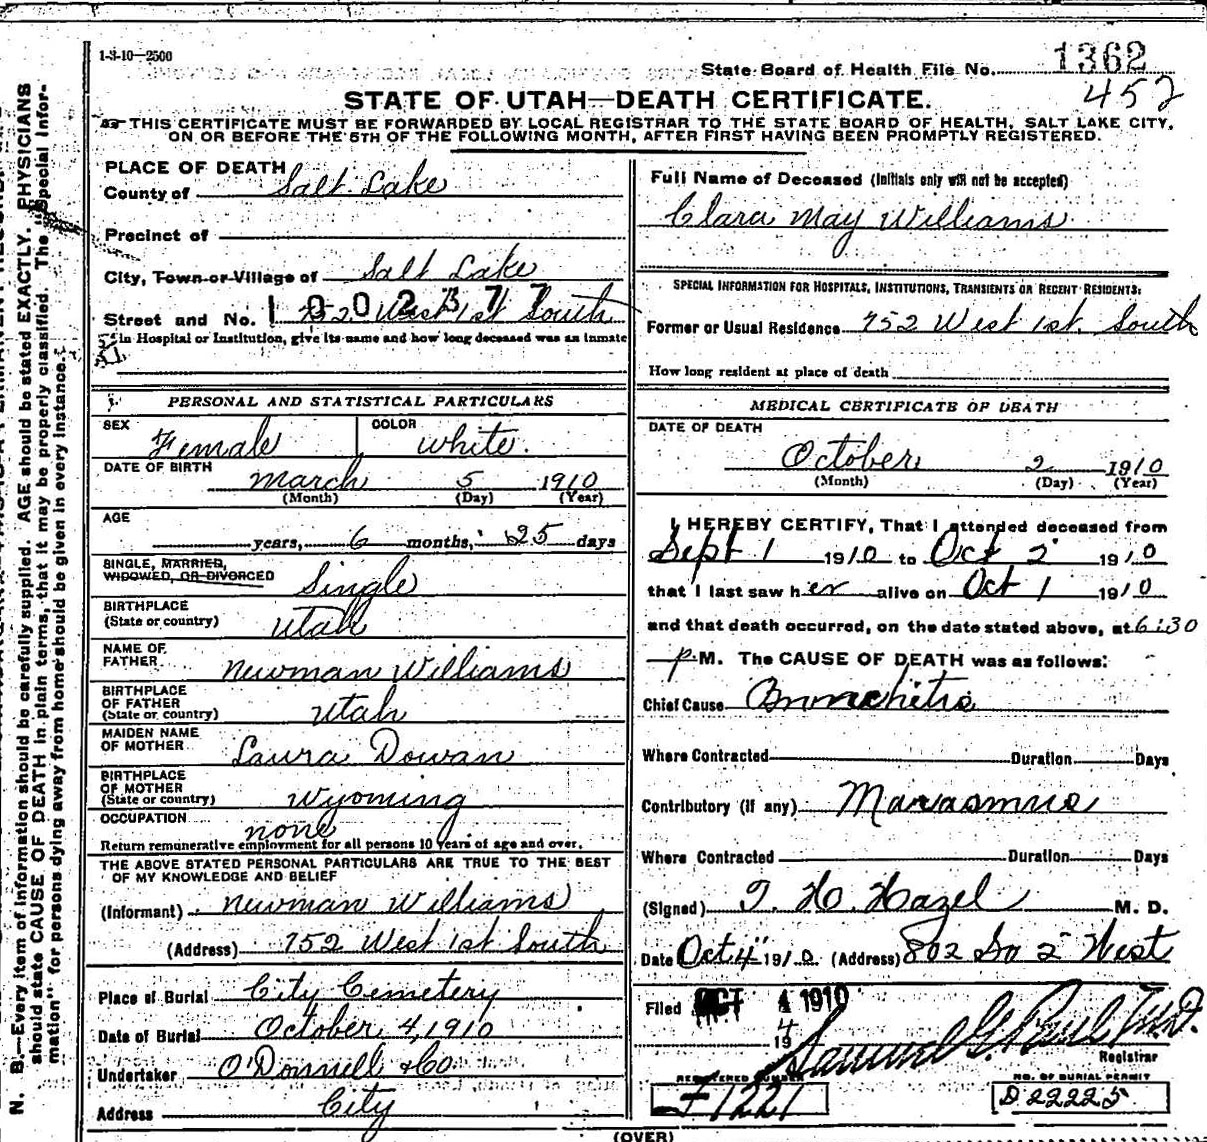 1-3-10—2500
State Board of Health File No. 1362
452
STATE OF UTAH—DEATH CERTIFICATE.
THIS CERTIFICATE MUST BE FORWARDED BY LOCAL REGISTRAR TO THE STATE BOARD OF HEALTH, SALT LAKE CITY,
ON OR BEFORE THE 5TH OF THE FOLLOWING MONTH, AFTER FIRST HAVING BEEN PROMPTLY REGISTERED.
PLACE OF DEATH
County of Salt Lake
Precinct of
City, Town or Village of Salt Lake
1002377
Street and No. 752 West 1st South
in Hospital or Institution, give its name and how long deceased was an inmate
PERSONAL AND STATISTICAL PARTICULARS
SEX Female COLOR white.
DATE OF BIRTH March 5 1910
(Month) (Day) (Year)
AGE years, 6 months, 25 days
SINGLE, MARRIED,
WIDOWED, OR DIVORCED Single
BIRTHPLACE
(State or country) Utah
NAME OF
FATHER Newman Williams
BIRTHPLACE
OF FATHER
(State or country) Utah
MAIDEN NAME
OF MOTHER Laura Dowan
BIRTHPLACE
OF MOTHER
(State or country) Wyoming
OCCUPATION none
Return remunerative employment for all persons 10 years of age and over.
THE ABOVE STATED PERSONAL PARTICULARS ARE TRUE TO THE BEST
OF MY KNOWLEDGE AND BELIEF
(Informant) Newman Williams
(Address) 752 West 1st South
Place of Burial City Cemetery
Date of Burial October 4, 1910
Undertaker O'Donnell & Co
Address City
Full Name of Deceased (Initials only will not be accepted)
Clara May Williams
SPECIAL INFORMATION FOR HOSPITALS, INSTITUTIONS, TRANSIENTS OR RECENT RESIDENTS:
Former or Usual Residence 752 West 1st. South
How long resident at place of death
MEDICAL CERTIFICATE OF DEATH
DATE OF DEATH
October 2 1910
(Month) (Day) (Year)
I HEREBY CERTIFY, That I attended deceased from
Sept 1 1910 to Oct 2 1910
that I last saw her alive on Oct 1 1910
and that death occurred, on the date stated above, at 6:30
p M. The CAUSE OF DEATH was as follows:
Chief Cause Bronchitis
Where Contracted Duration Days
Contributory (if any) Marasmus
Where Contracted Duration Days
(Signed) T. H. Hazel M. D.
Date Oct 4" 1910. (Address) 802 So 2" West
Filed OCT 4 1910
4 19
Samuel G. Paul M.D.
Registrar
REGISTERED NUMBER
F1221
NO. OF BURIAL PERMIT
D 22225
(OVER)
N. B.—Every item of information should be carefully supplied. AGE should be stated EXACTLY. PHYSICIANS
should state CAUSE OF DEATH in plain terms, that it may be properly classified. The "Special Infor-
mation" for persons dying away from home should be given in every instance.